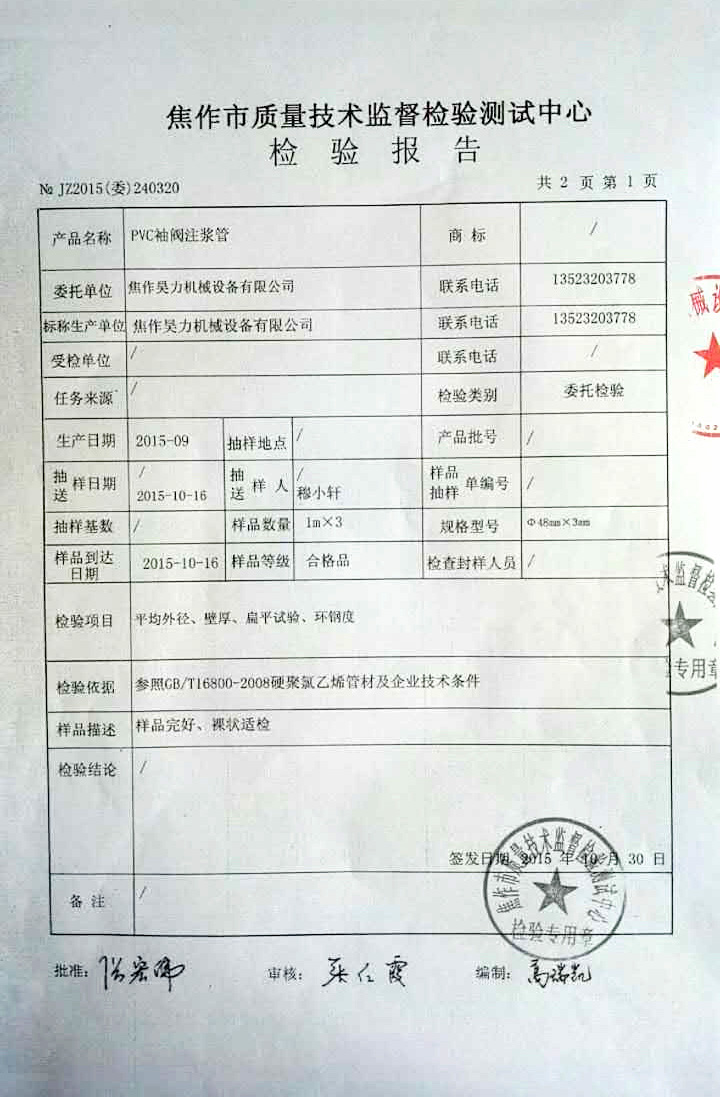 焦作市质量技术监督检验测试中心
检 验 报 告
№ JZ2015(委)240320 共 2 页 第 1 页
产品名称 PVC袖阀注浆管 商 标 /
委托单位 焦作昊力机械设备有限公司 联系电话 13523203778
标称生产单位 焦作昊力机械设备有限公司 联系电话 13523203778
受检单位 / 联系电话 /
任务来源 / 检验类别 委托检验
生产日期 2015-09 抽样地点 / 产品批号 /
抽 / 抽 / 样品
样日期 样 人 单编号 /
送 2015-10-16 送 穆小轩 抽样
抽样基数 / 样品数量 1m×3 规格型号 Φ48mm×3mm
样品到达 2015-10-16 样品等级 合格品 检查封样人员 /
日期
检验项目 平均外径、壁厚、扁平试验、环钢度
检验依据 参照GB/T16800-2008硬聚氯乙烯管材及企业技术条件
样品描述 样品完好、裸状适检
检验结论 /
签发日期 2015 年 10 月 30 日
备 注 /
焦作市质量技术监督检验测试中心
检验专用章
批准: 审核: 编制: 高瑞凯
械设
术监督检
专用章